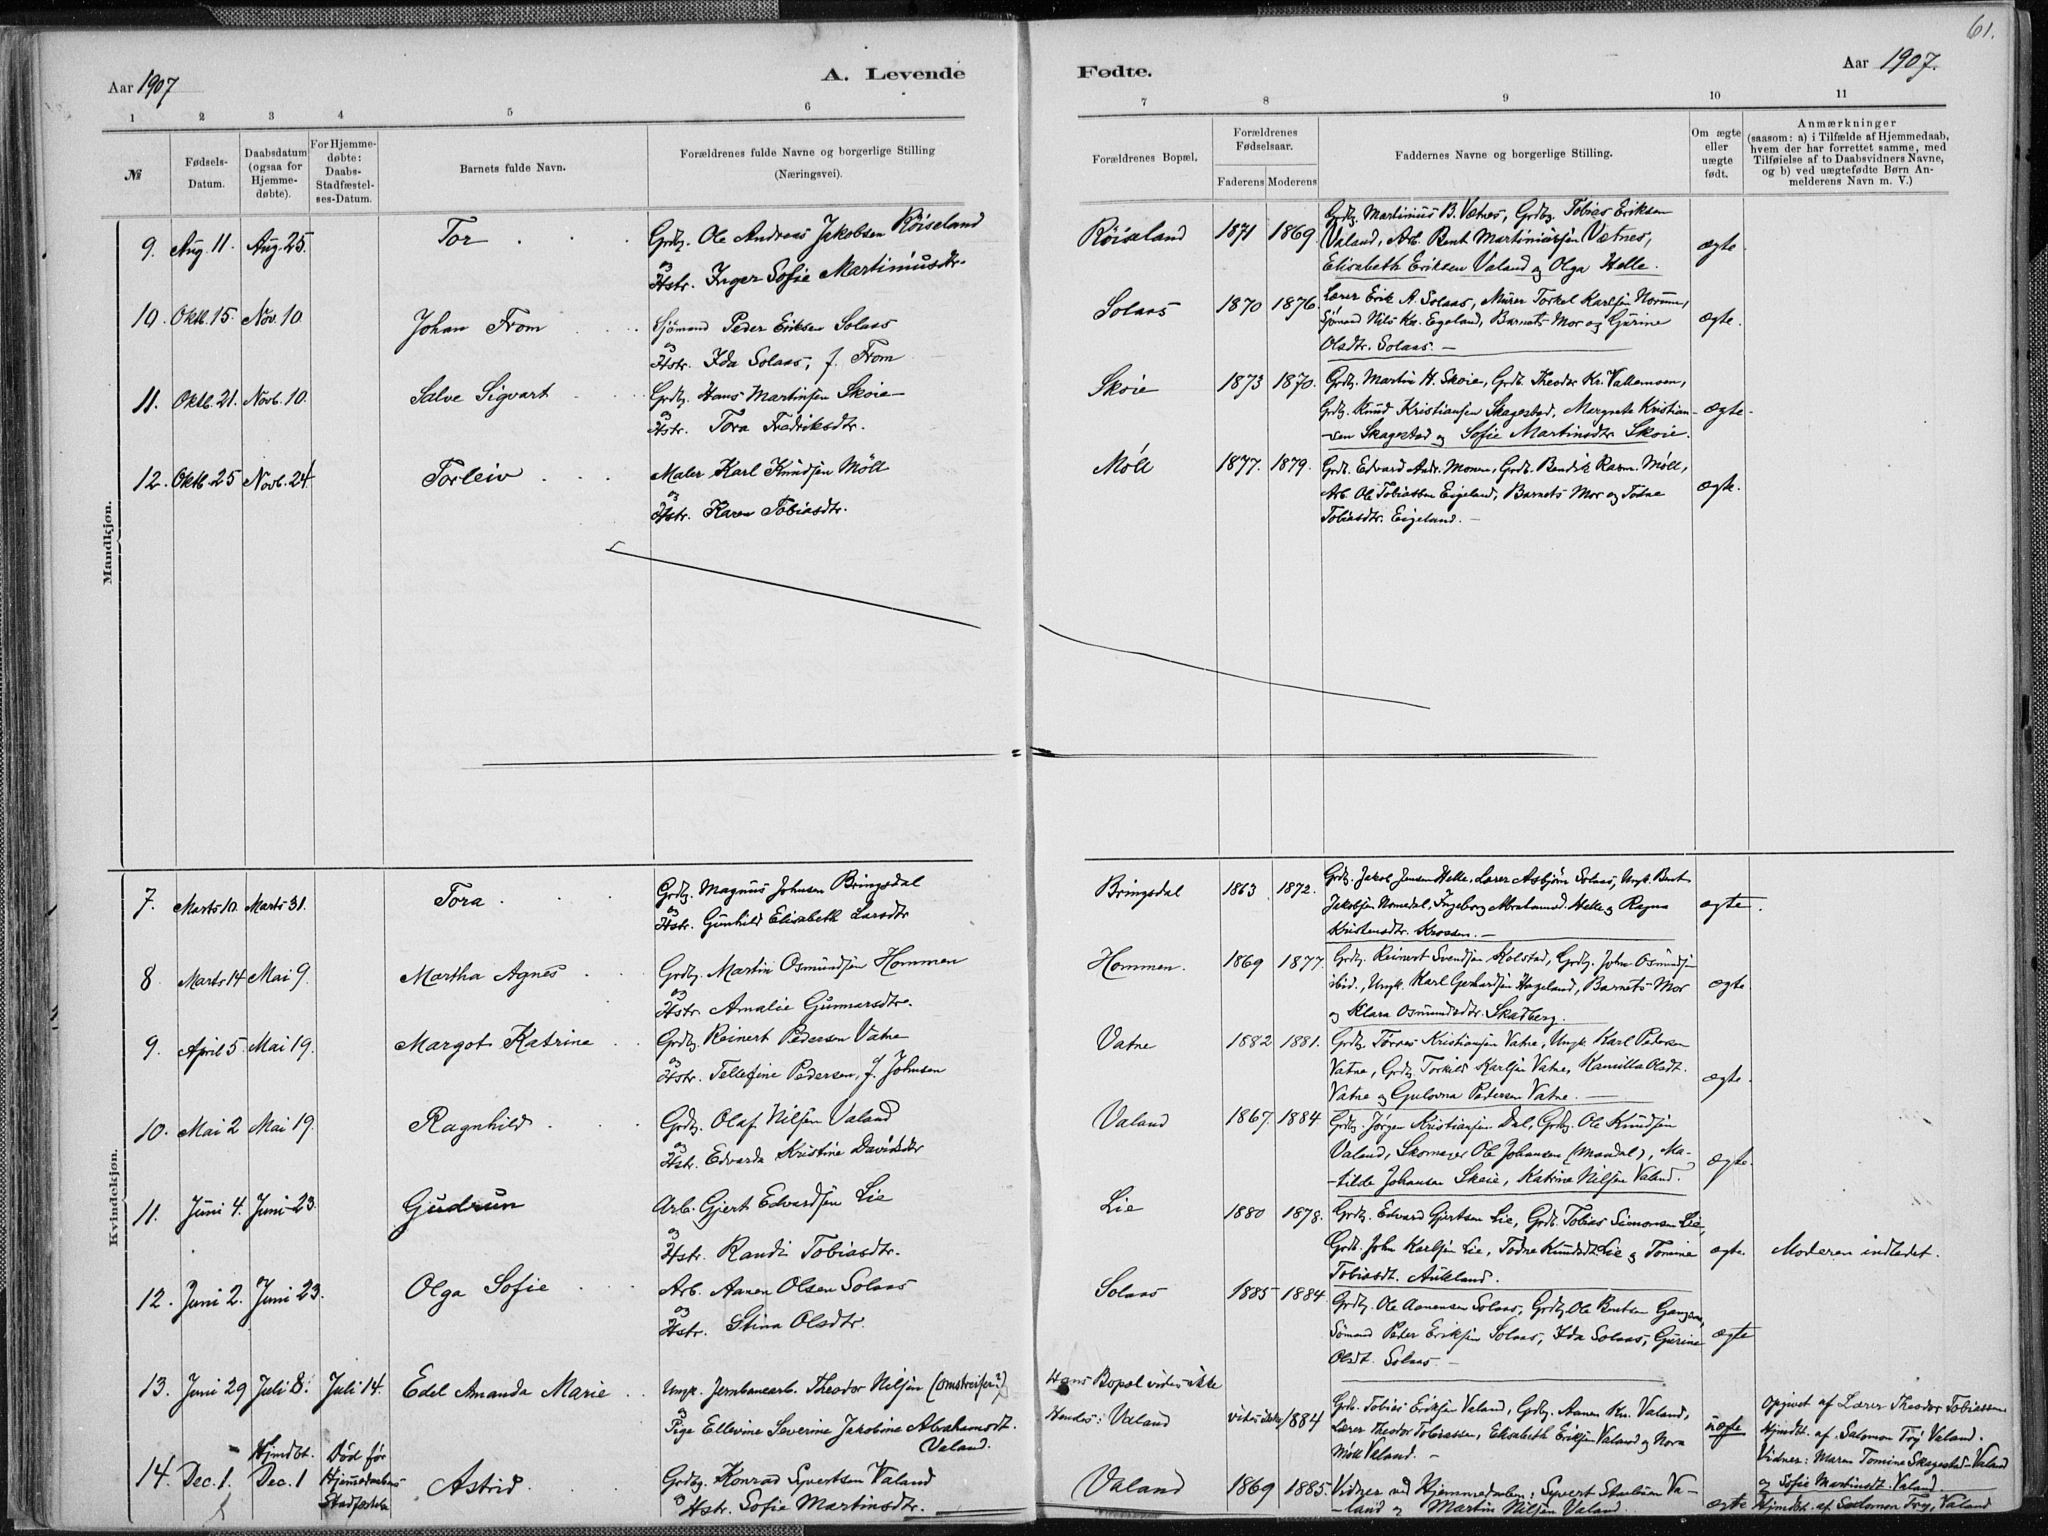 61.
Aar 1907
A. Levende
Fødte.
Aar 1907.
1 2 3 4 5 6 7 8 9 10 11
№
Fødsels-
Datum.
Daabsdatum
(ogsaa for
Hjemme-
døbte).
For Hjemme-
døbte:
Daabs-
Stadfæstel-
ses-Datum.
Barnets fulde Navn.
Forældrenes fulde Navne og borgerlige Stilling
(Næringsvei).
Forældrenes Bopæl.
Forældrenes
Fødselsaar.
Faderens Moderens
Faddernes Navne og borgerlige Stilling.
Om ægte
eller
uægte
født.
Anmærkninger
(saasom: a) i Tilfælde af Hjemmedaab,
hvem der har forrettet samme, med
Tilføielse af to Daabsvidners Navne,
og b) ved uægtefødte Børn An-
melderens Navn m. V.)
Mandkjøn.
9. Aug. 11. Aug. 25. Tor
Grdbr. Ole Andreas Jakobsen Röiseland
og Hstr. Inger Sofie Martiniusdtr.
Röiseland 1871 1869.
Grdbr. Martinius B. Vætnes, Grdbr. Tobias Eriksen
Valand, Arb. Bent Martiniussen Vætnes,
Elisabeth Eriksen Valand og Olga Helle.
ægte.
10. Oktb. 15. Nov. 10. Johan From
Sjömand Peder Eriksen Solaas
og Hstr. Ida Solaas, f. From
Solaas 1870 1876.
Lærer Erik A. Solaas, Murer Torkel Karlsen Norum,
Sjömand Nils Kr. Eigeland, Barnets Mor og Gurine
Olsdtr. Solaas. —
ægte.
11. Oktb. 21. Novb. 10. Salve Sigvart
Grdbr. Hans Martinsen Skoie
og Hstr. Tora Fredriksdtr.
Skoie 1873 1870.
Grdbr. Martin H. Skoie, Grdb. Theodor Kr. Vallemoen,
Grdbr. Knud Kristiansen Skagestad, Margrete Kristian-
-sen Skagestad og Sofie Martinsdtr Skoie.
ægte.
12. Oktb. 25 Novb. 24 Torleiv
Maler Karl Knudsen Möll
og Hstr. Karen Tobiasdtr.
Möll 1877. 1879.
Grdb. Edvard Andr. Monen, Grdb. Bendik Rasm. Möll,
Arb. Ole Tobiassen Eigeland, Barnets Mor og Todne
Tobiasdtr. Eigeland. —
ægte.
Kvindekjøn.
7. Marts 10. Marts 31. Tora
Grdbr. Magnus Johnsen Bringsdal
og Hstr. Gunhild Elisabeth Larsdtr
Bringsdal 1863 1872.
Grdbr. Jakob Jensen Helle, Lærer Asbjörn Solaas, Ungk. Bent
Jakobsen Nomedal, Ingeborg Abrahamsd. Helle og Ragna
Kristensdtr. Krossen. —
ægte.
8 Marts 14 Mai 9. Martha Agnes
Grdbr. Martin Osmundsen Hommen
og Hstr Amalie Gunnarsdtr.
Hommen. 1869 1877.
Grdbr. Reinert Svendsen Holstad, Grdbr. John Osmundsen
ibid., Ungk. Karl Gerhardsen Hageland, Barnets Mor
og Klara Osmundsdtr. Skadberg.
ægte.
9. April 5. Mai 19. Margot Katrine
Grdbr. Reinert Pedersen Vatne
og Hstr. Tellefine Pedersen, f. Johnsen
Vatne 1882 1881.
Grdbr. Törres Kristiansen Vatne, Ungk. Karl Pedersen
Vatne, Grdbr. Torkild Karlsen Vatne, Kamilla Olsdt.
Vatne og Gulovna Pedersen Vatne. —
ægte.
10. Mai 2 Mai 19. Ragnhild
Grdbr. Olaf Nilsen Valand
og Hstr. Edvarda Kristine Davidsdtr
Valand 1867. 1884
Grdbr. Jörgen Kristiansen Dal, Grdbr. Ole Knudsen
Valand, Skomager Ole Johansen (Mandal), Ma-
-tilde Johansen Skoie, Katrine Nilsen Valand.
ægte.
11. Juni 4. Juni 23. Gudrun
Arb. Gjert Edvardsen Lie
og Hstr. Randi Tobiasdtr.
Lie 1880 1878.
Grdbr. Edvard Gjertsen Lie, Grdb. Tobias Simonsen Lie,
Grdb. John Karlsen Lie, Todne Knudsdt. Lie og Tomine
Tobiasdt. Aukland.
ægte. Moderen indledet.
12. Juni 2. Juni 23. Olga Sofie
Arb. Aanen Olsen Solaas
og Hstr. Stina Olsdtr.
Solaas 1885 1884
Grdbr. Ole Aanensen Solaas, Grdbr. Ole Bentsen
Sömand Peder Eriksen Solaas, Ida Solaas, Gurine
Olsdt. Solaas. —
ægte
13. Juni 29 Juli 8. Juli 14. Edel Amanda Marie
Ungk. Jernbanearb. Theodor Nilsen (omstreifer?)
og Pige Ellevine Severine Jakobine Abrahamsdt.
Valand.
Hans Bopæl vides ikke
Hendes: Valand vides ikke 1884
Grdb. Tobias Eriksen Valand, Grdbr. Aanen Kn. Valand,
Lærer Theodor Tobiassen, Elisabeth Eriksen Valand og Nora
Möll Valand. —
uægte
Opgivet af Lærer Theodor Tobiassen
Hjmdt. af Salomon Try Valand.
Vidner: Maren Tomine Skagestad-Valand
og Sofie Martinsdt. Valand.
14. Dec. 1. Hjmdbt. Dec. 1 Död før
Hjemmedaabens
Stadfæstelse
Astrid
Grdbr. Konrad Syvertsen Valand
og Hstr. Sofie Martinsdtr.
Valand 1869 1885.
Vidner ved Hjemmedaaben: Syvert Va-
-land og Martin Nilsen Valand.
ægte Hjmdbt. af Salomon Try, Valand